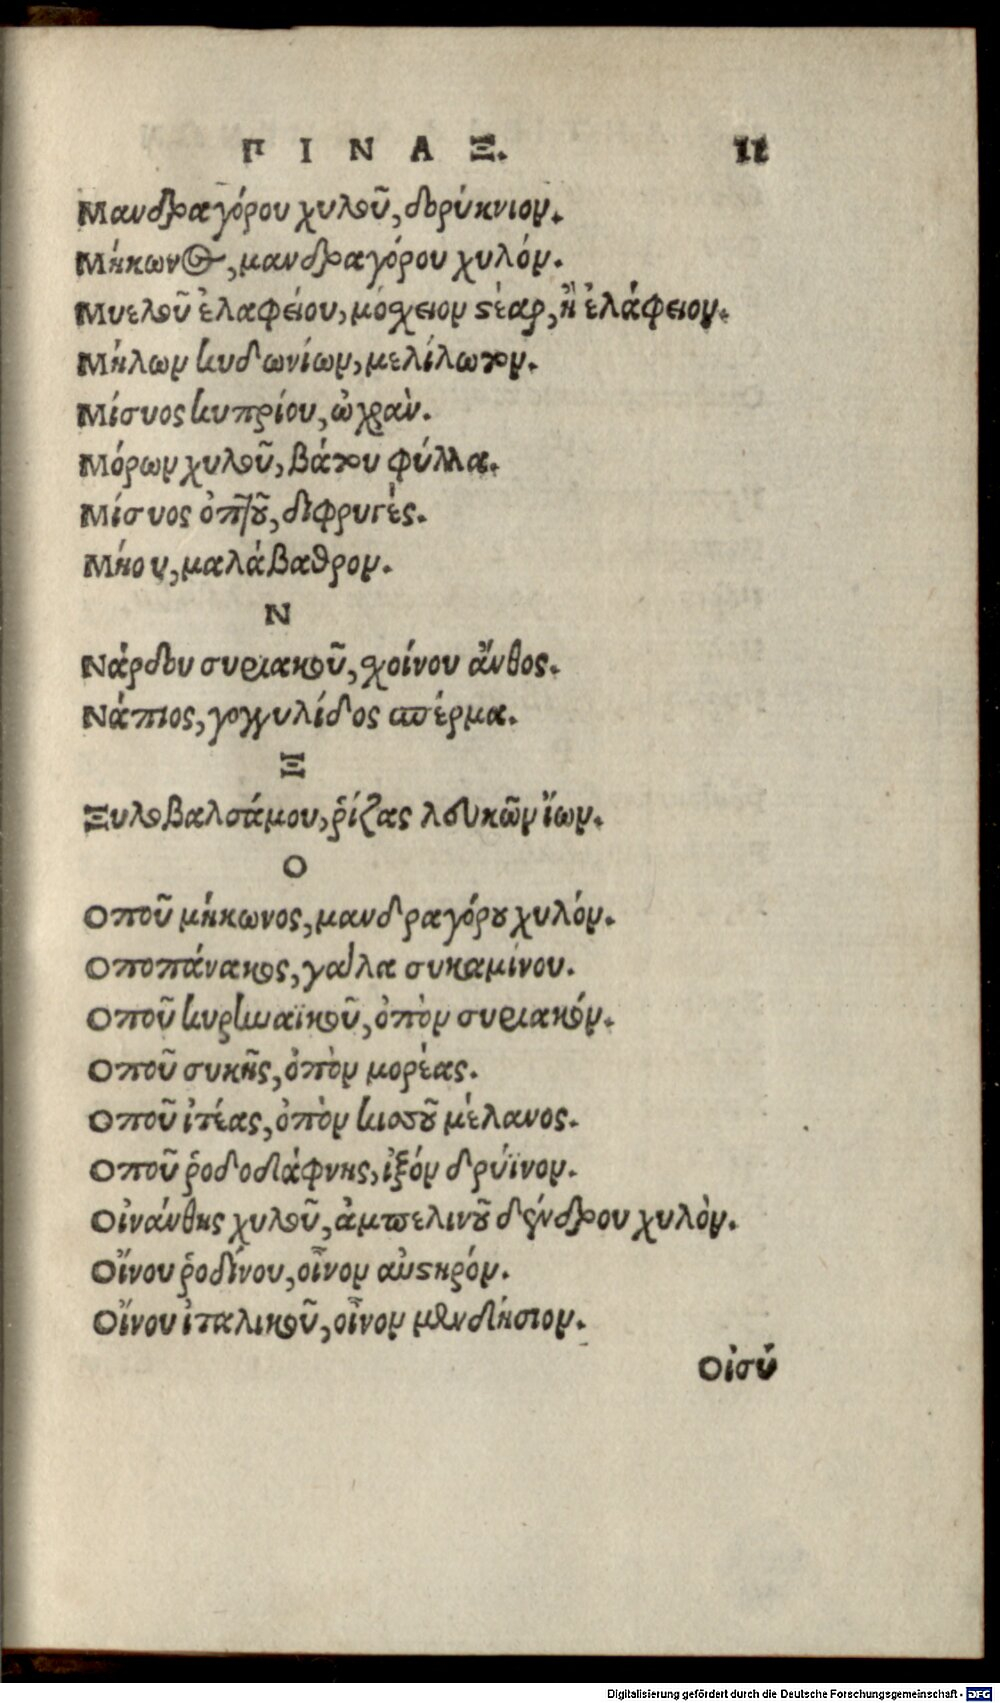 ΠΙΝΑΞ. 11
Μανδραγόρου χυλοῦ, δορύκνιον.
Μήκωνος, μανδραγόρου χυλόν.
Μυελοῦ ἐλαφείου, μόσχειον στέαρ, ἢ ἐλάφειον.
Μήλων κυδωνίων, μελίλωτον.
Μίσυος κυπρίου, ὠχραν.
Μόρων χυλοῦ, βάτου φύλλα.
Μίσυος ὀπτοῦ, διφρυγές.
Μήου, μαλάβαθρον.
Ν
Νάρδου συριακοῦ, σχοίνου ἄνθος.
Νάπιος, γογγυλίδος σπέρμα.
Ξ
Ξυλοβαλσάμου, ῥίζας λευκῶν ἴων.
Ο
Οποῦ μήκωνος, μανδραγόρου χυλόν.
Οποπάνακος, γάλα συκαμίνου.
Οποῦ κυρηναϊκοῦ, ὀπὸν συριακόν.
Οποῦ συκῆς, ὀπὸν μορέας.
Οποῦ ἰτέας, ὀπὸν κισσοῦ μέλανος.
Οποῦ ῥοδοδάφνης, ἰξόν δρύϊνον.
Οἰνάνθης χυλοῦ, ἀμπελινοῦ δένδρου χυλὸν.
Οἴνου ῥοδίνου, οἶνον αὐστηρόν.
Οἴνου ἰταλικοῦ, οἶνον μενδήσιον.
Οἰσύ
Digitalisierung gefördert durch die Deutsche Forschungsgemeinschaft - DFG